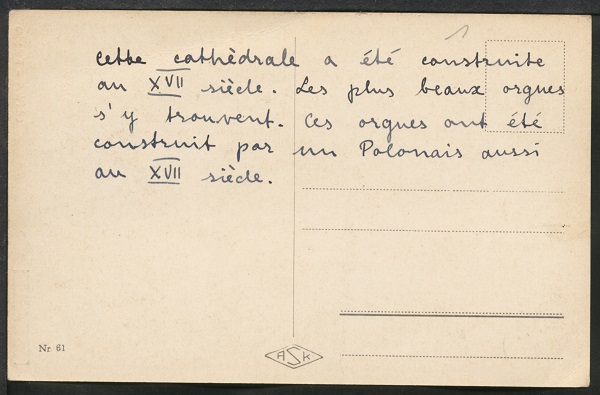 cette cathèdrale a été construite
au XVII siècle. Les plus beaux orgues
s'y trouvent. Ces orgues ont été
construit par un Polonais aussi
au XVII siècle.
Nr 61
ASK